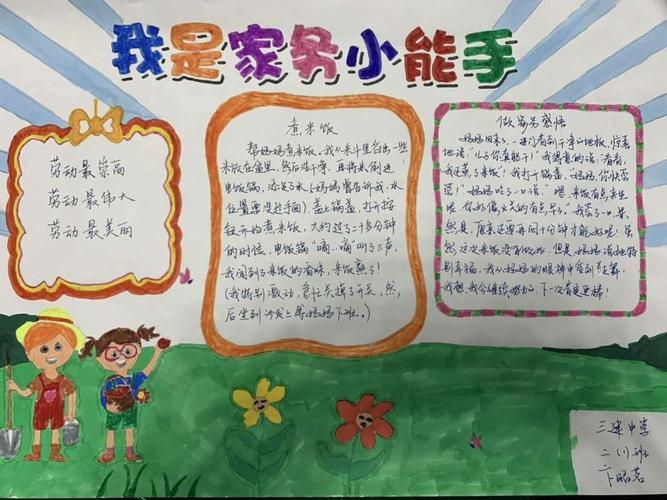 我是家务小能手
劳动最崇高
劳动最伟大
劳动最美丽
煮米饭
帮妈妈煮米饭，我从米斗里舀出一些
米放在盆里，然后洗干净，再将米倒进
电饭锅，添足了水（妈妈警告所我，水
位置要没过手面），盖上锅盖，打开按
钮开始煮米饭，大约过了二十多分钟
的时候，电饭锅“嘀…嘀”叫了三声，
我闻到了米饭的香味，米饭熟了！
（我特别激动，急忙关掉了开关，然
后坐到沙发上等妈妈下班。）
做家务感悟
妈妈回来了，一进门看到干净的地板，惊喜
地说：“儿子你真能干！”我得意的说：“看看，
我还煮了米饭”，我打开锅盖，“妈妈，你快尝
尝！”妈妈吃了一口说：“嗯，米饭有点夹生
呢，你好像火关的有点早了。”我尝了一口，果
然是，原来还要再闷十分钟才能好呢！虽
然这次米饭没有做好，但是，妈妈说她特
别幸福，我从妈妈的眼神中受到鼓舞，
我想，我会继续努力，下一次肯定更棒！
三建中学
二（1）班
卞昭茗